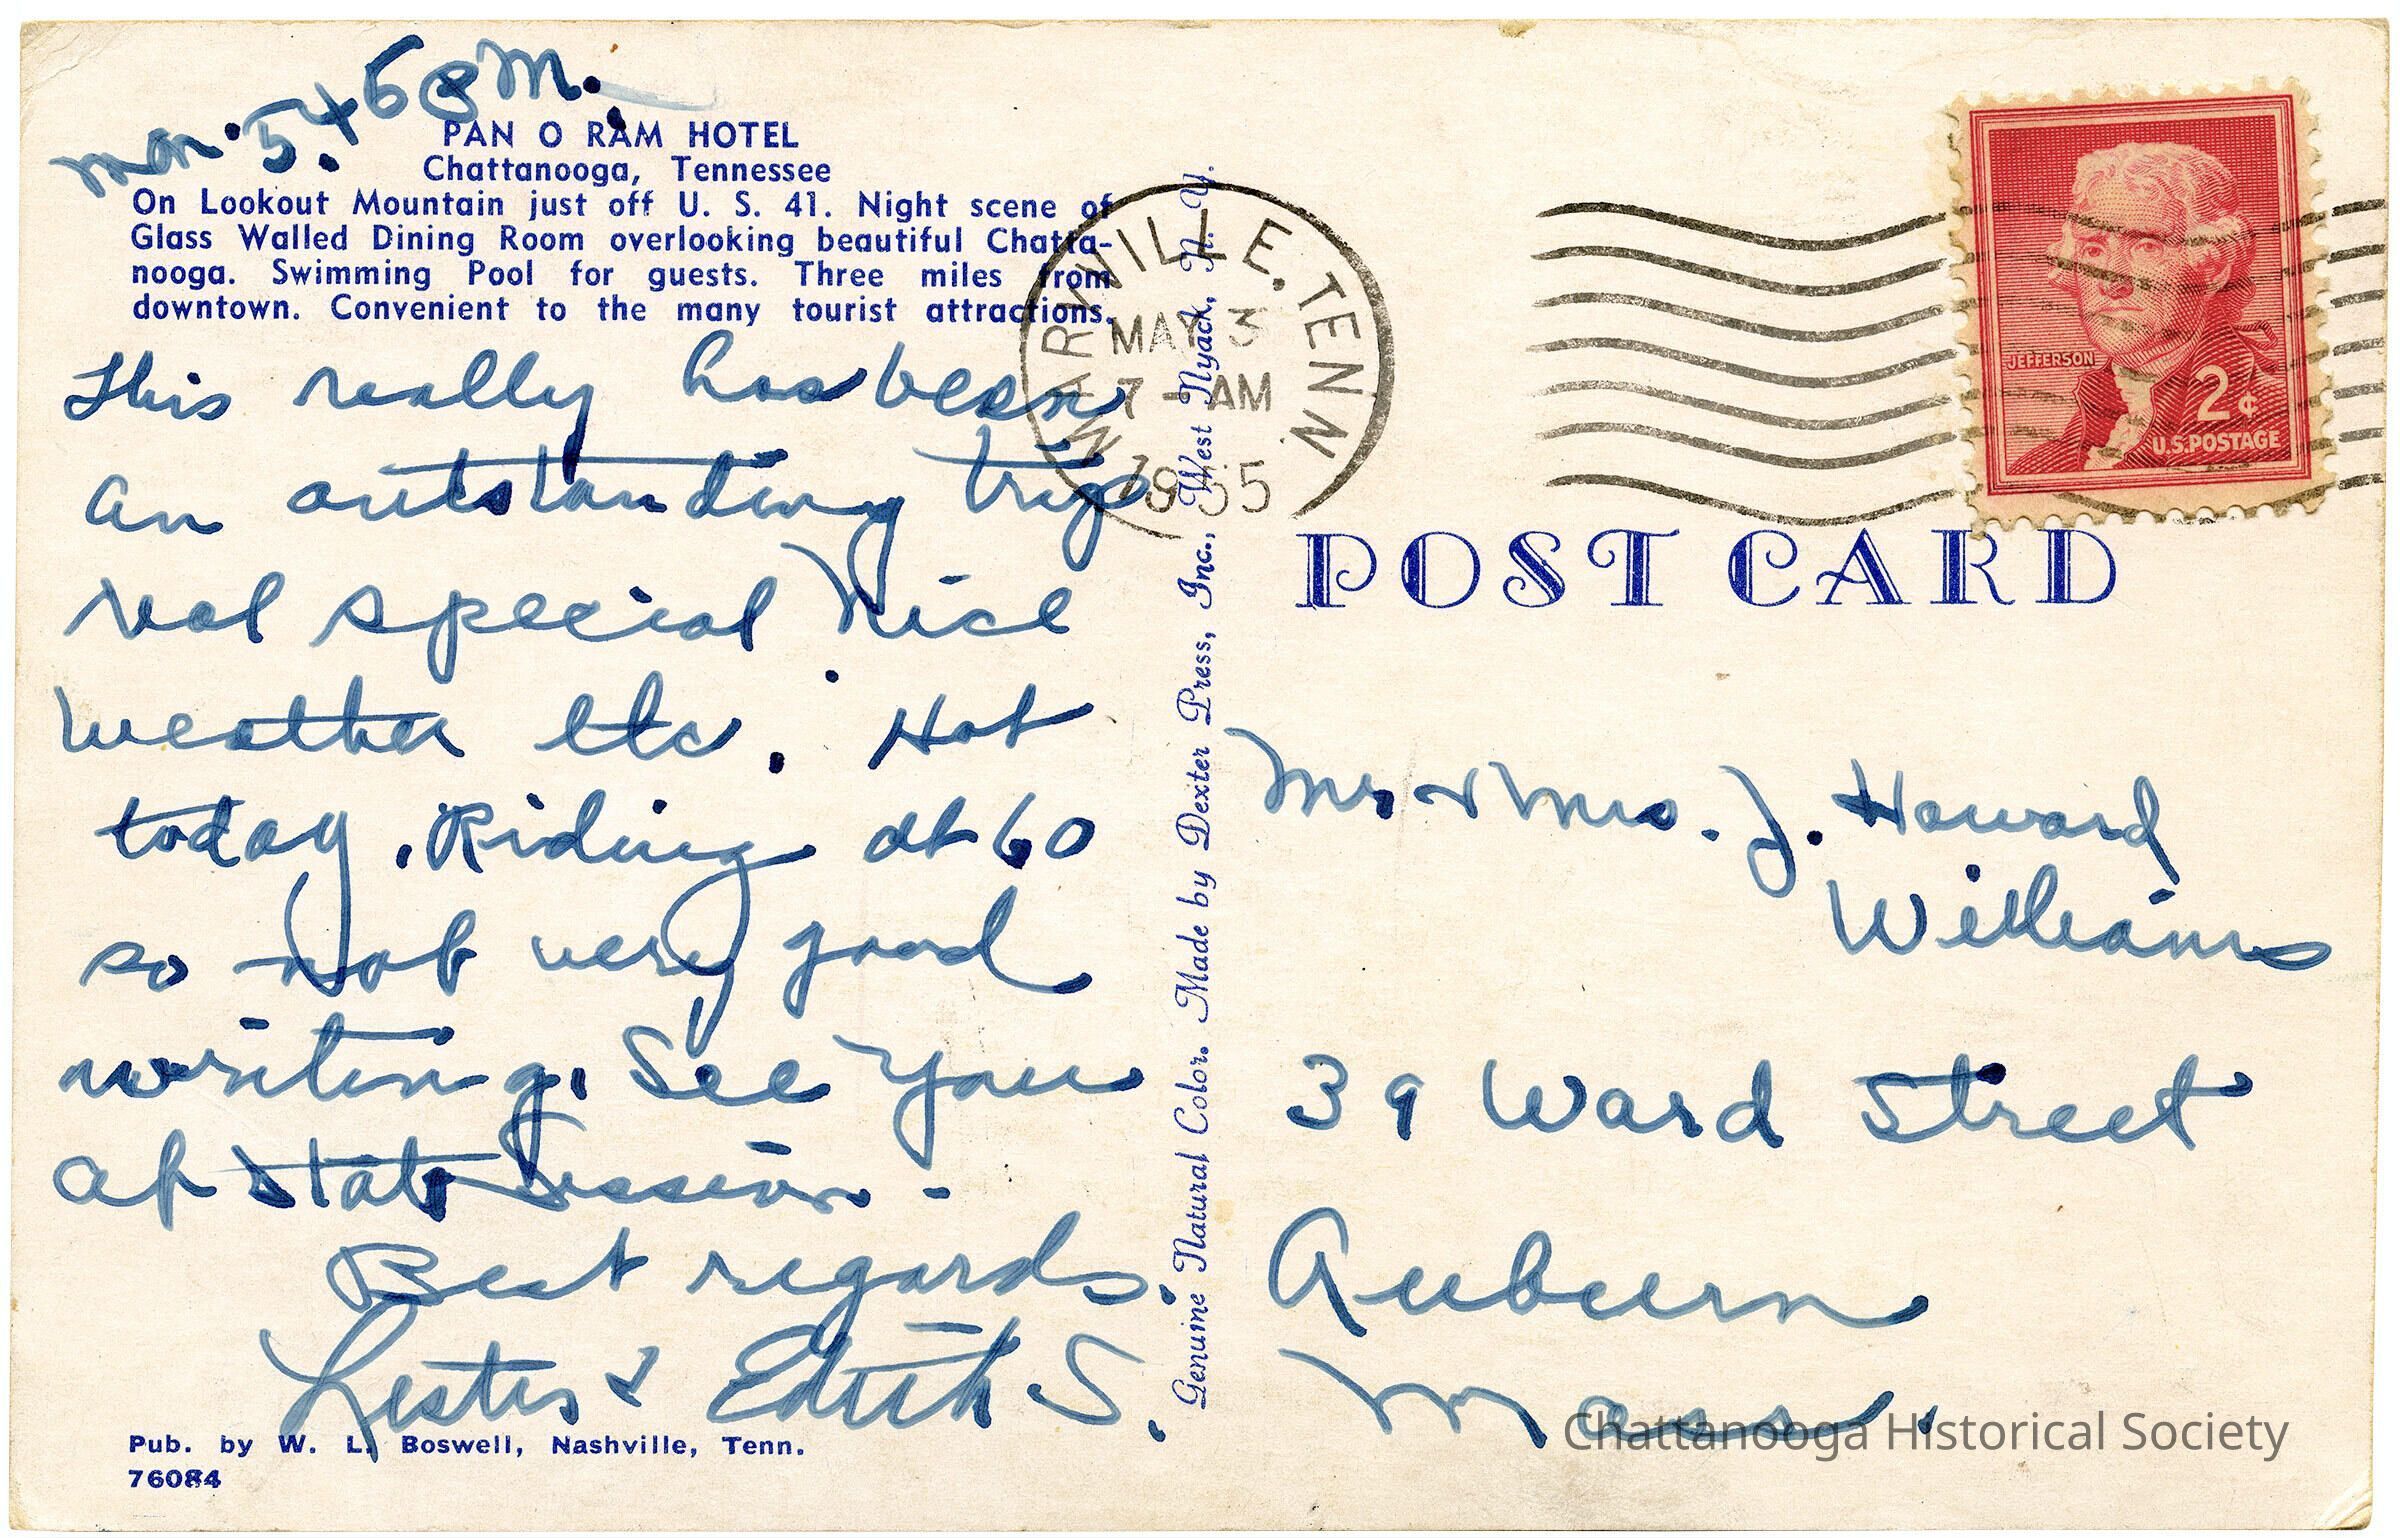 Mon. 5.45 P M.
PAN O RAM HOTEL
Chattanooga, Tennessee
On Lookout Mountain just off U. S. 41. Night scene of
Glass Walled Dining Room overlooking beautiful Chatta-
nooga. Swimming Pool for guests. Three miles from
downtown. Convenient to the many tourist attractions.
This really has been
an outstanding trip
real special. Nice
weather etc. Hot
today. Riding at 60
so not very good
writing. See you
at State Session -
Best regards.
Lester & Edith S.
Pub. by W. L. Boswell, Nashville, Tenn.
76084
Genuine Natural Color. Made by Dexter Press, Inc., West Nyack, N. Y.
TENN.
MAY 3
7 - AM
1955
JEFFERSON
2¢
U.S. POSTAGE
POST CARD
Mr & Mrs. J. Howard
Williams
39 Ward Street
Auburn
Mass.
Chattanooga Historical Society